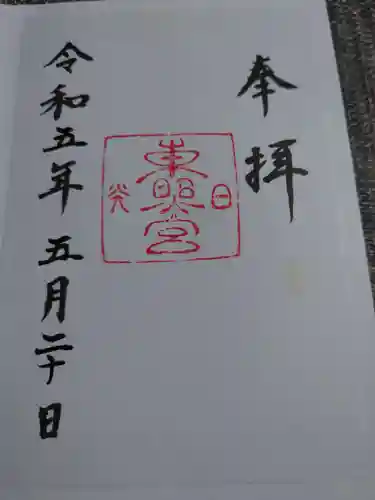 奉拝
日光
東照宮
令和五年五月二十日